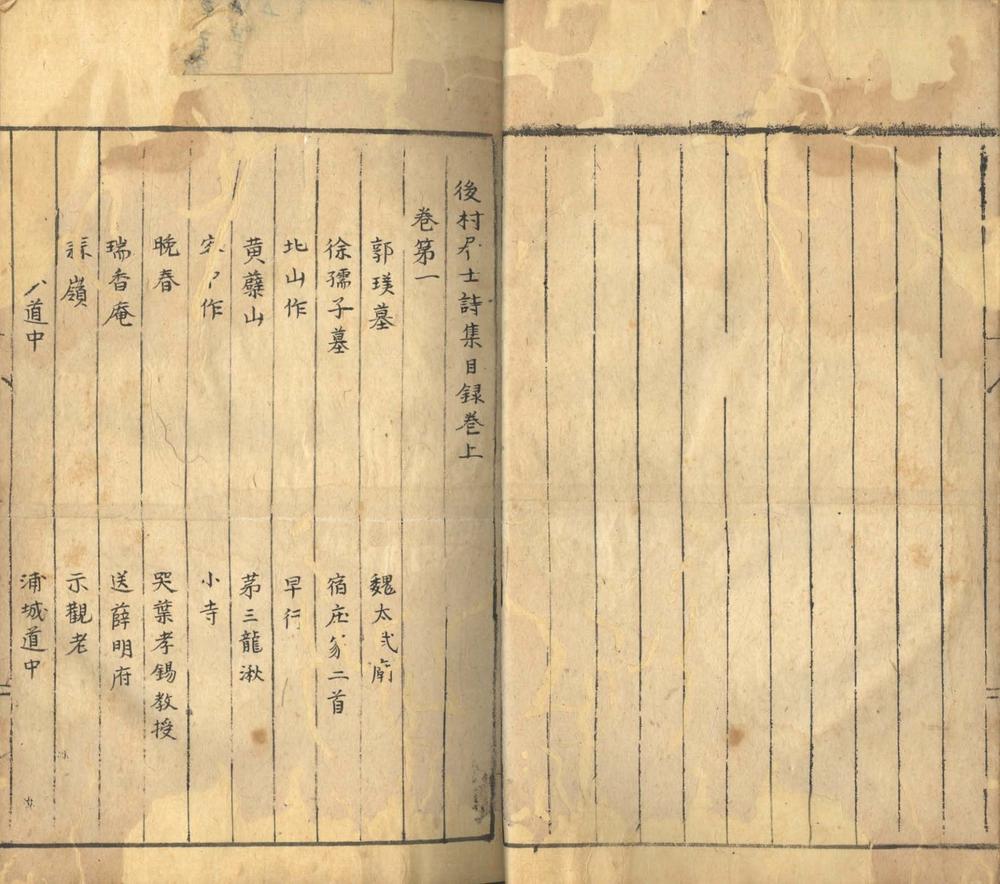 後村居士詩集目録卷上
卷第一
郭璞墓 魏太武廟
徐孺子墓 宿庄家二首
北山作 早行
黄蘗山 苐三龍湫
作 小寺
晚春 哭葉孝錫教授
瑞香庵 送薛明府
嶺 示觀老
道中 浦城道中